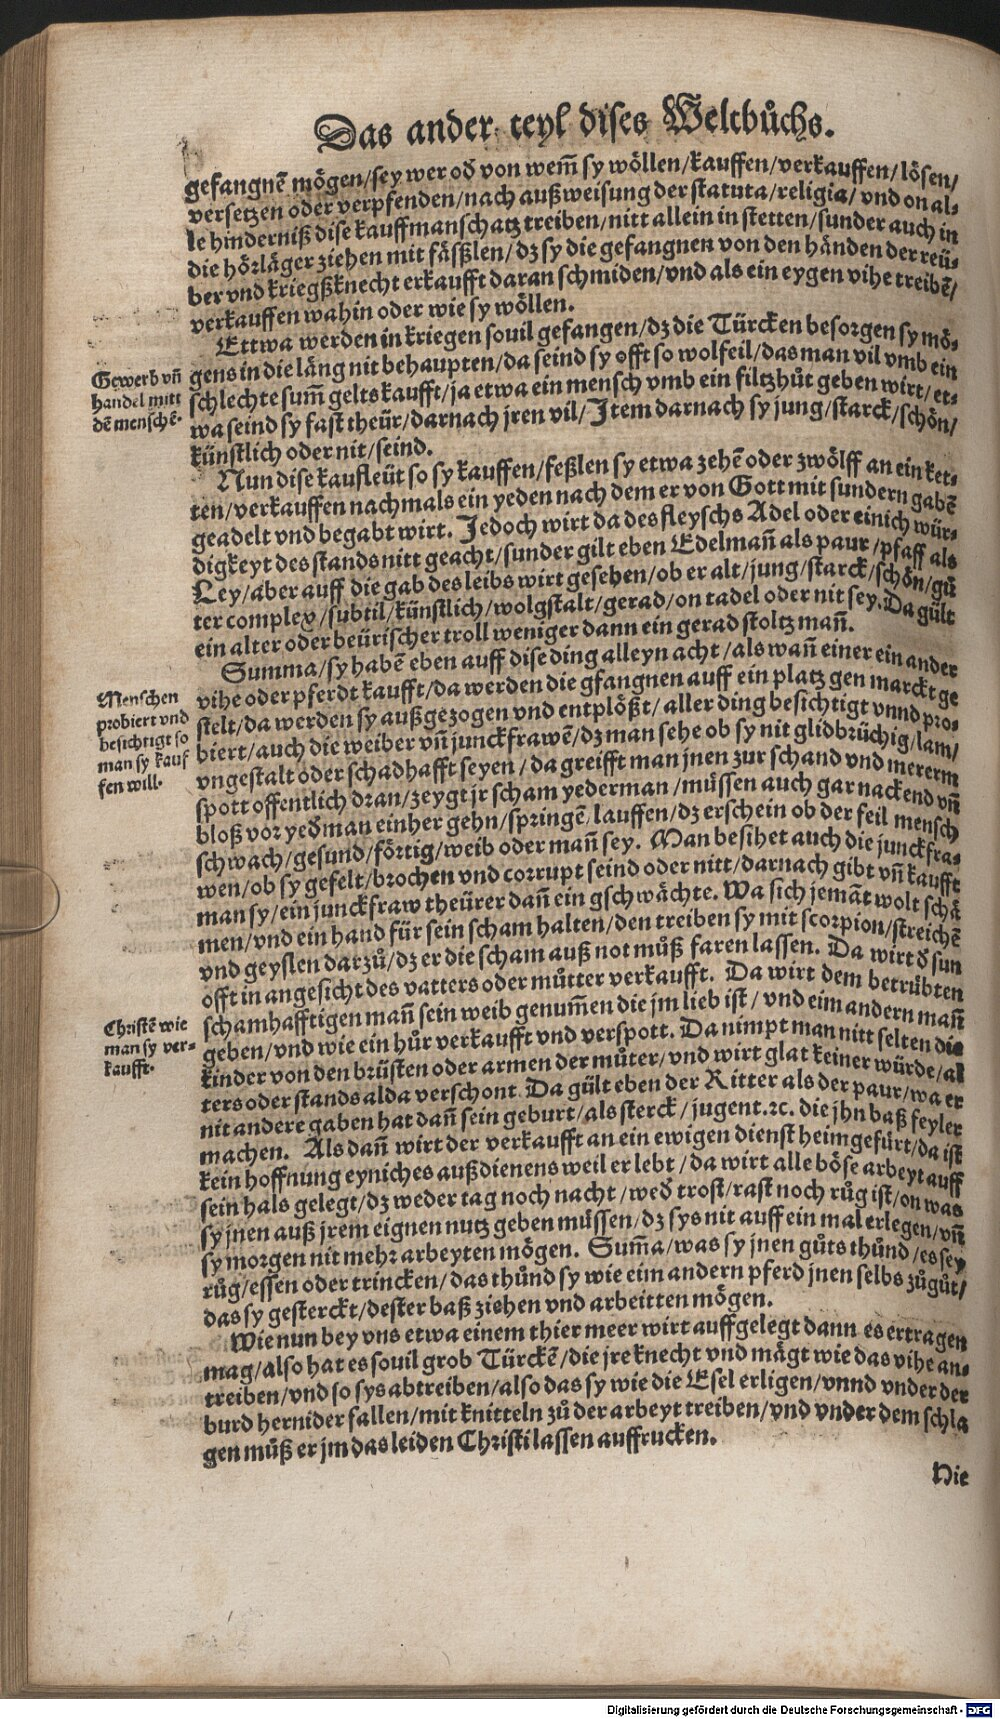 Das ander teyl dises Weltbůchs.
gefangnẽ mögen/sey wer oď von wem̃ sy wöllen/kauffen/verkauffen/lösen/
versetzen oder verpfenden/nach außweisung der statuta/religia/vnd on al-
le hinderniß dise kauffmanschatz treiben/nitt allein in stetten/sunder auch in
die hörläger ziehen mit fäsßlen/dz sy die gefangnen von den händen der reü-
ber vnd kriegßknecht erkaufft daran schmiden/vnd als ein eygen vihe treibẽ/
verkauffen wahin oder wie sy wöllen.
Ettwa werden in kriegen souil gefangen/dz die Türcken besorgen sy mö-
gens in die läng nit behaupten/da seind sy offt so wolfeil/das man vil vmb ein
schlechte sum̃ gelts kaufft/ja etwa ein mensch vmb ein filtzhůt geben wirt/et-
wa seind sy fast theür/darnach jren vil/Jtem darnach sy jung/starck/schön/
künstlich oder nit/seind.
Gewerb vñ
handel mitt
dẽ menschẽ.
Nun dise kaufleüt so sy kauffen/feßlen sy etwa zehẽ oder zwölff an ein ket-
ten/verkauffen nachmals ein yeden nach dem er von Gott mit sundern gabẽ
geadelt vnd begabt wirt. Jedoch wirt da des fleyschs Adel oder einich wür-
digkeyt des stands nitt geacht/sunder gilt eben Edelmañ als paur/pfaff als
Ley/aber auff die gab des leibs wirt gesehen/ob er alt/jung/starck/schön/gů
ter complex/subtil/künstlich/wolgstalt/gerad/on tadel oder nit sey. Da gült
ein alter oder beürischer troll weniger dann ein gerad stoltz mañ.
Summa/sy habẽ eben auff dise ding alleyn acht/als wañ einer ein ander
vihe oder pferdt kaufft/da werden die gfangnen auff ein platz gen marckt ge
stelt/da werden sy außgezogen vnd entplößt/aller ding besichtigt vnnd pro-
biert/auch die weiber vñ junckfrawẽ/dz man sehe ob sy nit glidbrüchig/lam/
vngestalt oder schadhafft seyen/da greifft man jnen zur schand vnd mererm
spott offentlich dran/zeygt jr scham yederman/müssen auch gar nackend vñ
bloß vor yeďman einher gehn/springẽ/lauffen/dz erschein ob der feil mensch
schwach/gesund/förtig/weib oder mañ sey. Man besihet auch die junckfra-
wen/ob sy gefelt/brochen vnd corrupt seind oder nitt/darnach gibt vñ kaufft
man sy/ein junckfraw theürer dañ ein gschwächte. Wa sich jemãt wolt schä
men/vnd ein hand für sein scham halten/den treiben sy mit scorpion/streichẽ
vnd geyslen darzů/dz er die scham auß not můß faren lassen. Da wirt ď sun
offt in angesicht des vatters oder můtter verkaufft. Da wirt dem betrübten
schamhafftigen mañ sein weib genum̃en die jm lieb ist/vnd eim andern mañ
geben/vnd wie ein hůr verkaufft vnd verspott. Da nimpt man nitt selten die
kinder von den brüsten oder armen der můter/vnd wirt glat keiner würde/al
ters oder stands alda verschont. Da gült eben der Ritter als der paur/wa er
nit andere gaben hat dañ sein geburt/als sterck/jugent.ꝛc. die jhn baß feyler
machen. Als dañ wirt der verkaufft an ein ewigen dienst heim gefürt/da ist
kein hoffnung eyniches außdienens weil er lebt/da wirt alle böse arbeyt auff
sein hals gelegt/dz weder tag noch nacht/weď trost/rast noch růg ist/on was
sy jnen auß jrem eignen nutz geben müssen/dz sys nit auff ein mal erlegen/vñ
sy morgen nit mehr arbeyten mögen. Sum̃a/was sy jnen gůts thůnd/es sey
růg/essen oder trincken/das thůnd sy wie eim andern pferd jnen selbs zůgůt/
das sy gesterckt/dester baß ziehen vnd arbeitten mögen.
Menschen
probiert vnd
besichtigt so
man sy kauf
fen will.
Christẽ wie
man sy ver-
kaufft.
Wie nun bey vns etwa einem thier meer wirt auffgelegt dann es ertragen
mag/also hat es souil grob Türckẽ/die jre knecht vnd mägt wie das vihe an-
treiben/vnd so sys abtreiben/also das sy wie die Esel erligen/vnnd vnder der
burd hernider fallen/mit knitteln zů der arbeyt treiben/vnd vnder dem schla
gen můß er jm das leiden Christi lassen auffrucken.
Nie
Digitalisierung gefördert durch die Deutsche Forschungsgemeinschaft - DFG